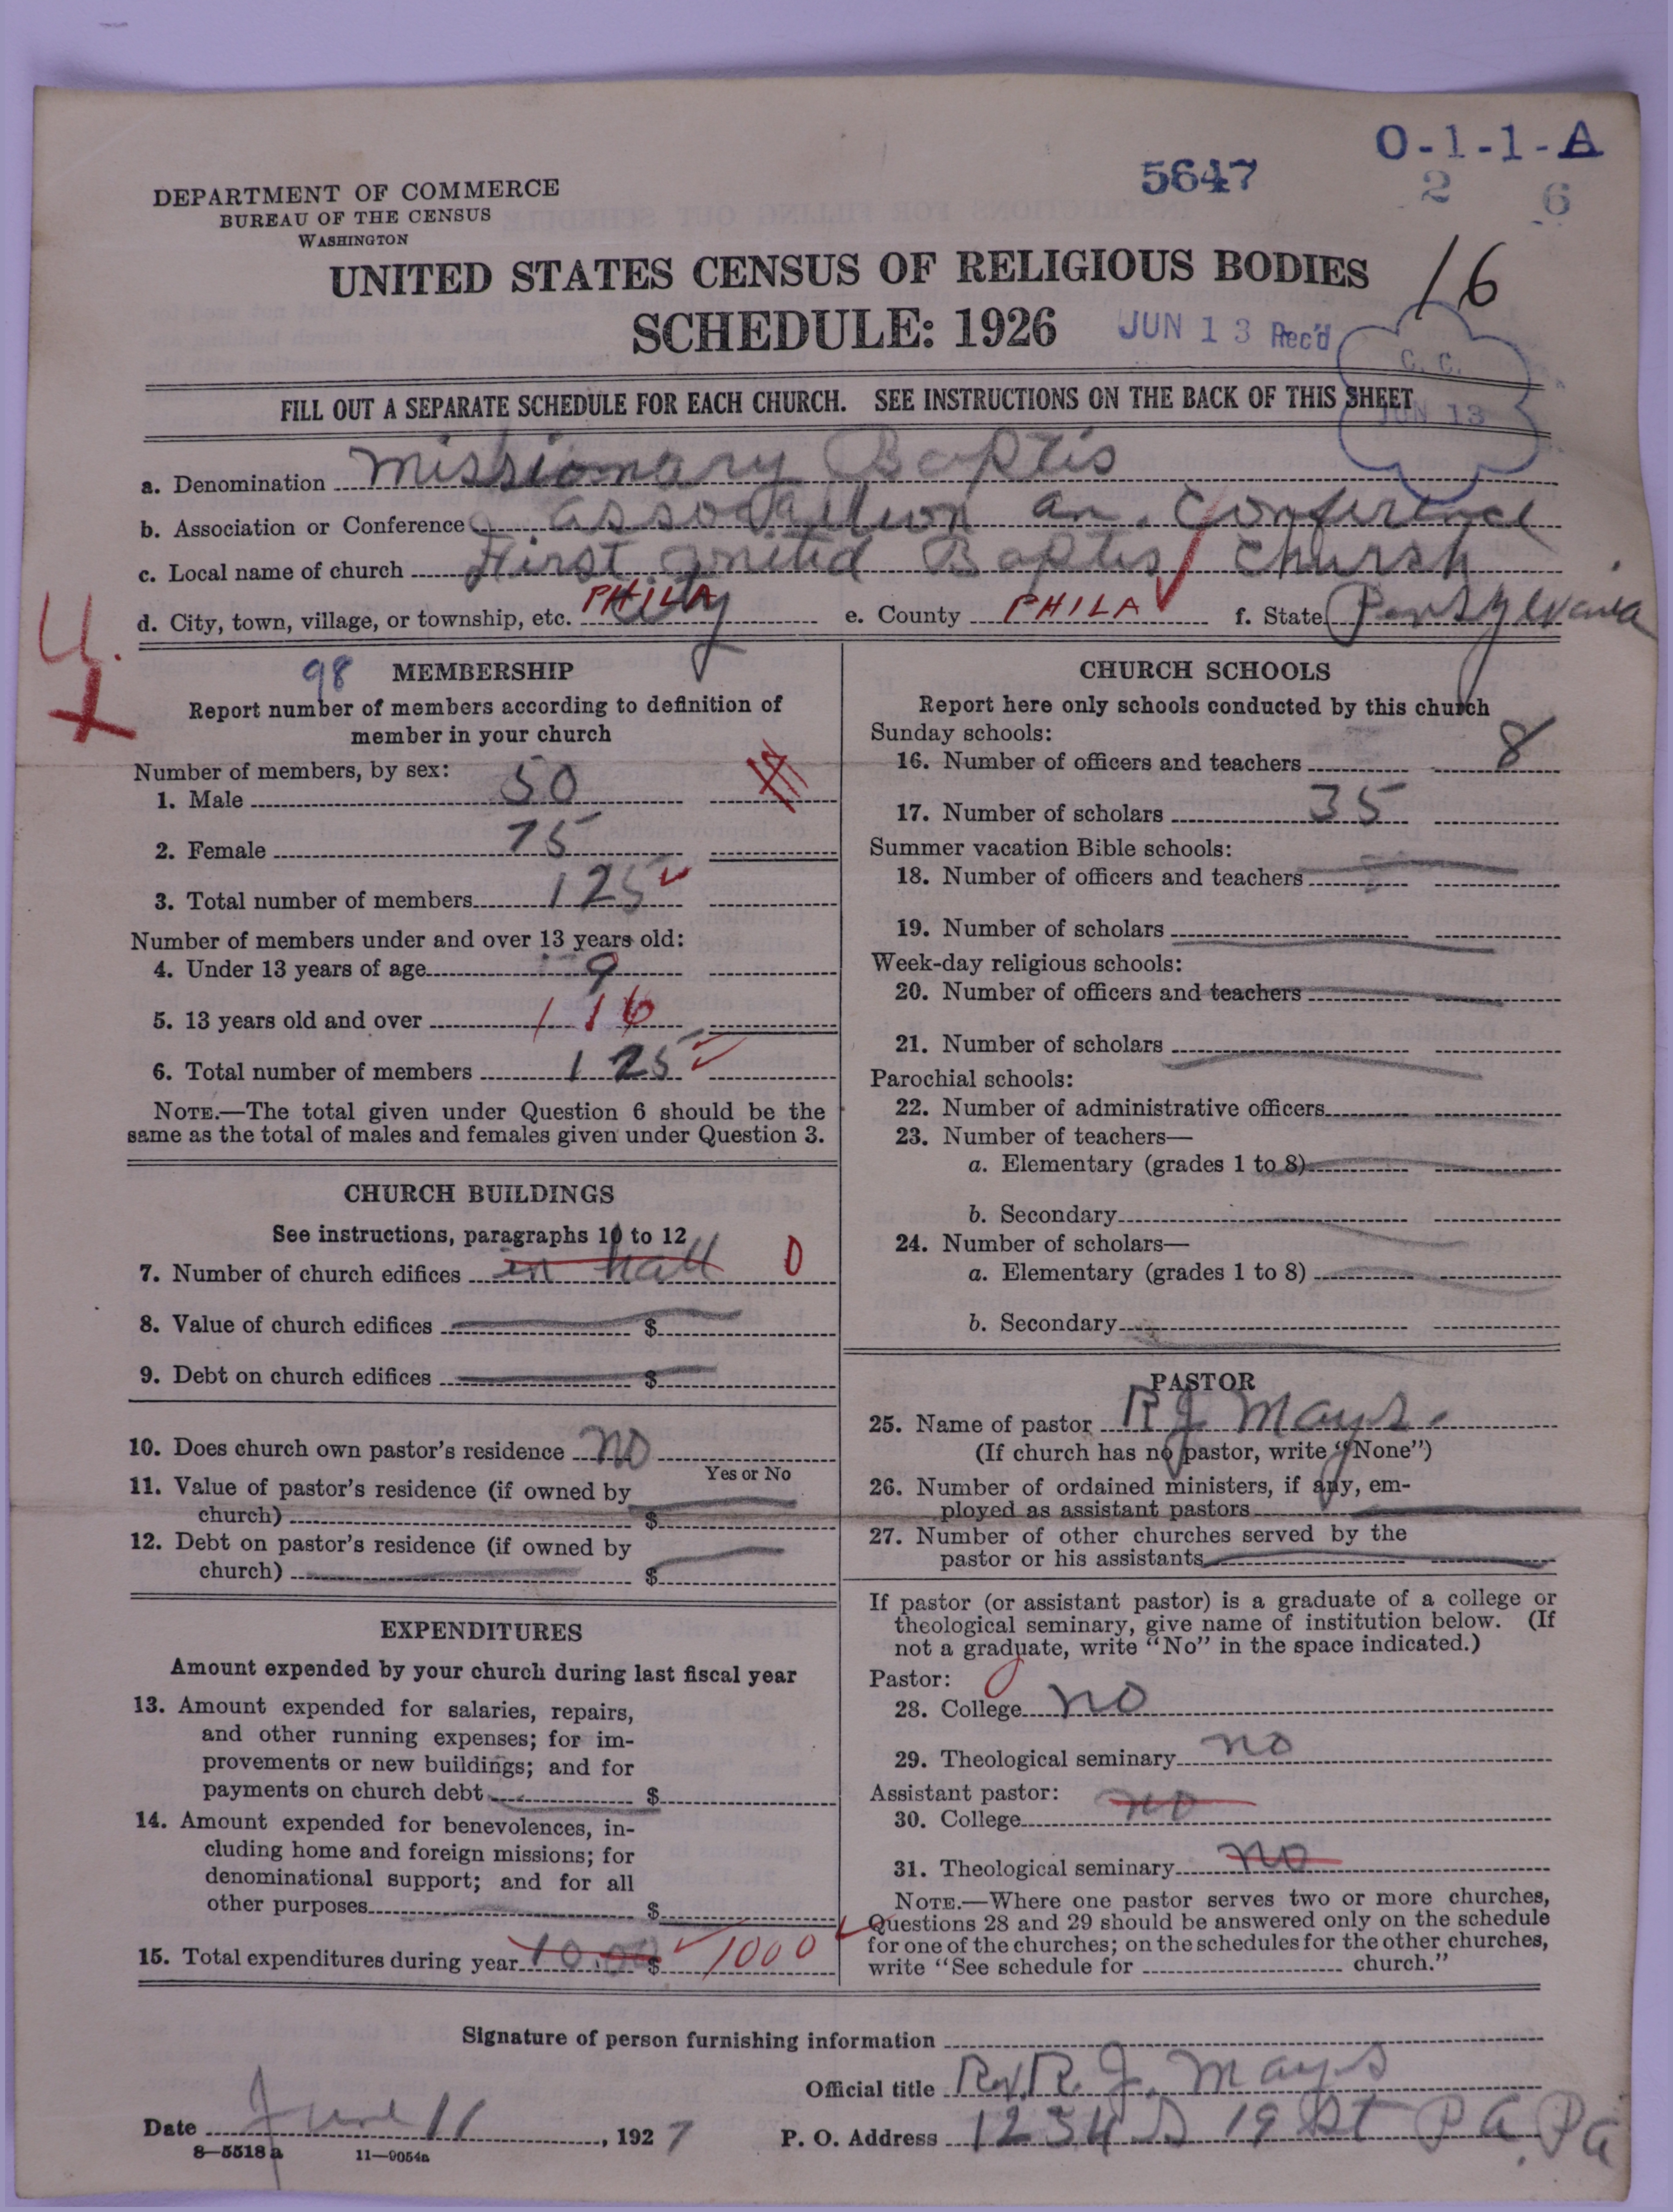 O-1-1-A
5647
2 6
DEPARTMENT OF COMMERCE
BUREAU OF THE CENSUS
WASHINGTON
UNITED STATES CENSUS OF RELIGIOUS BODIES
16
SCHEDULE: 1926
JUN 13 Rec'd
C. C.
JUN 13
FILL OUT A SEPARATE SCHEDULE FOR EACH CHURCH. SEE INSTRUCTIONS ON THE BACK OF THIS SHEET
a. Denomination Missionary Baptis
b. Association or Conference association an. Conference
c. Local name of church First united Baptis Church
d. City, town, village, or township, etc. PHILA City e. County PHILA f. State Pensylvania
U.
X
98 MEMBERSHIP
Report number of members according to definition of
member in your church
Number of members, by sex:
1. Male 50
2. Female 75
3. Total number of members 125
Number of members under and over 13 years old:
4. Under 13 years of age 9
5. 13 years old and over 116
6. Total number of members 125
NOTE.—The total given under Question 6 should be the
same as the total of males and females given under Question 3.
CHURCH BUILDINGS
See instructions, paragraphs 10 to 12
7. Number of church edifices in hall 0
8. Value of church edifices $
9. Debt on church edifices $
10. Does church own pastor's residence no
Yes or No
11. Value of pastor's residence (if owned by
church) $
12. Debt on pastor's residence (if owned by
church) $
EXPENDITURES
Amount expended by your church during last fiscal year
13. Amount expended for salaries, repairs,
and other running expenses; for im-
provements or new buildings; and for
payments on church debt $
14. Amount expended for benevolences, in-
cluding home and foreign missions; for
denominational support; and for all
other purposes $
15. Total expenditures during year 10.00 $ 1000
CHURCH SCHOOLS
Report here only schools conducted by this church
Sunday schools:
16. Number of officers and teachers 8
17. Number of scholars 35
Summer vacation Bible schools:
18. Number of officers and teachers
19. Number of scholars
Week-day religious schools:
20. Number of officers and teachers
21. Number of scholars
Parochial schools:
22. Number of administrative officers
23. Number of teachers—
a. Elementary (grades 1 to 8)
b. Secondary
24. Number of scholars—
a. Elementary (grades 1 to 8)
b. Secondary
PASTOR
25. Name of pastor R J Mays.
(If church has no pastor, write "None")
26. Number of ordained ministers, if any, em-
ployed as assistant pastors
27. Number of other churches served by the
pastor or his assistants
If pastor (or assistant pastor) is a graduate of a college or
theological seminary, give name of institution below. (If
not a graduate, write "No" in the space indicated.)
Pastor:
28. College no
29. Theological seminary no
Assistant pastor:
30. College no
31. Theological seminary no
NOTE.—Where one pastor serves two or more churches,
Questions 28 and 29 should be answered only on the schedule
for one of the churches; on the schedules for the other churches,
write "See schedule for church."
Signature of person furnishing information
Official title Rev. R. J. Mays
Date June 11, 1927 P. O. Address 1234 S 19 St P a. Pa
8—5518a 11—9054a